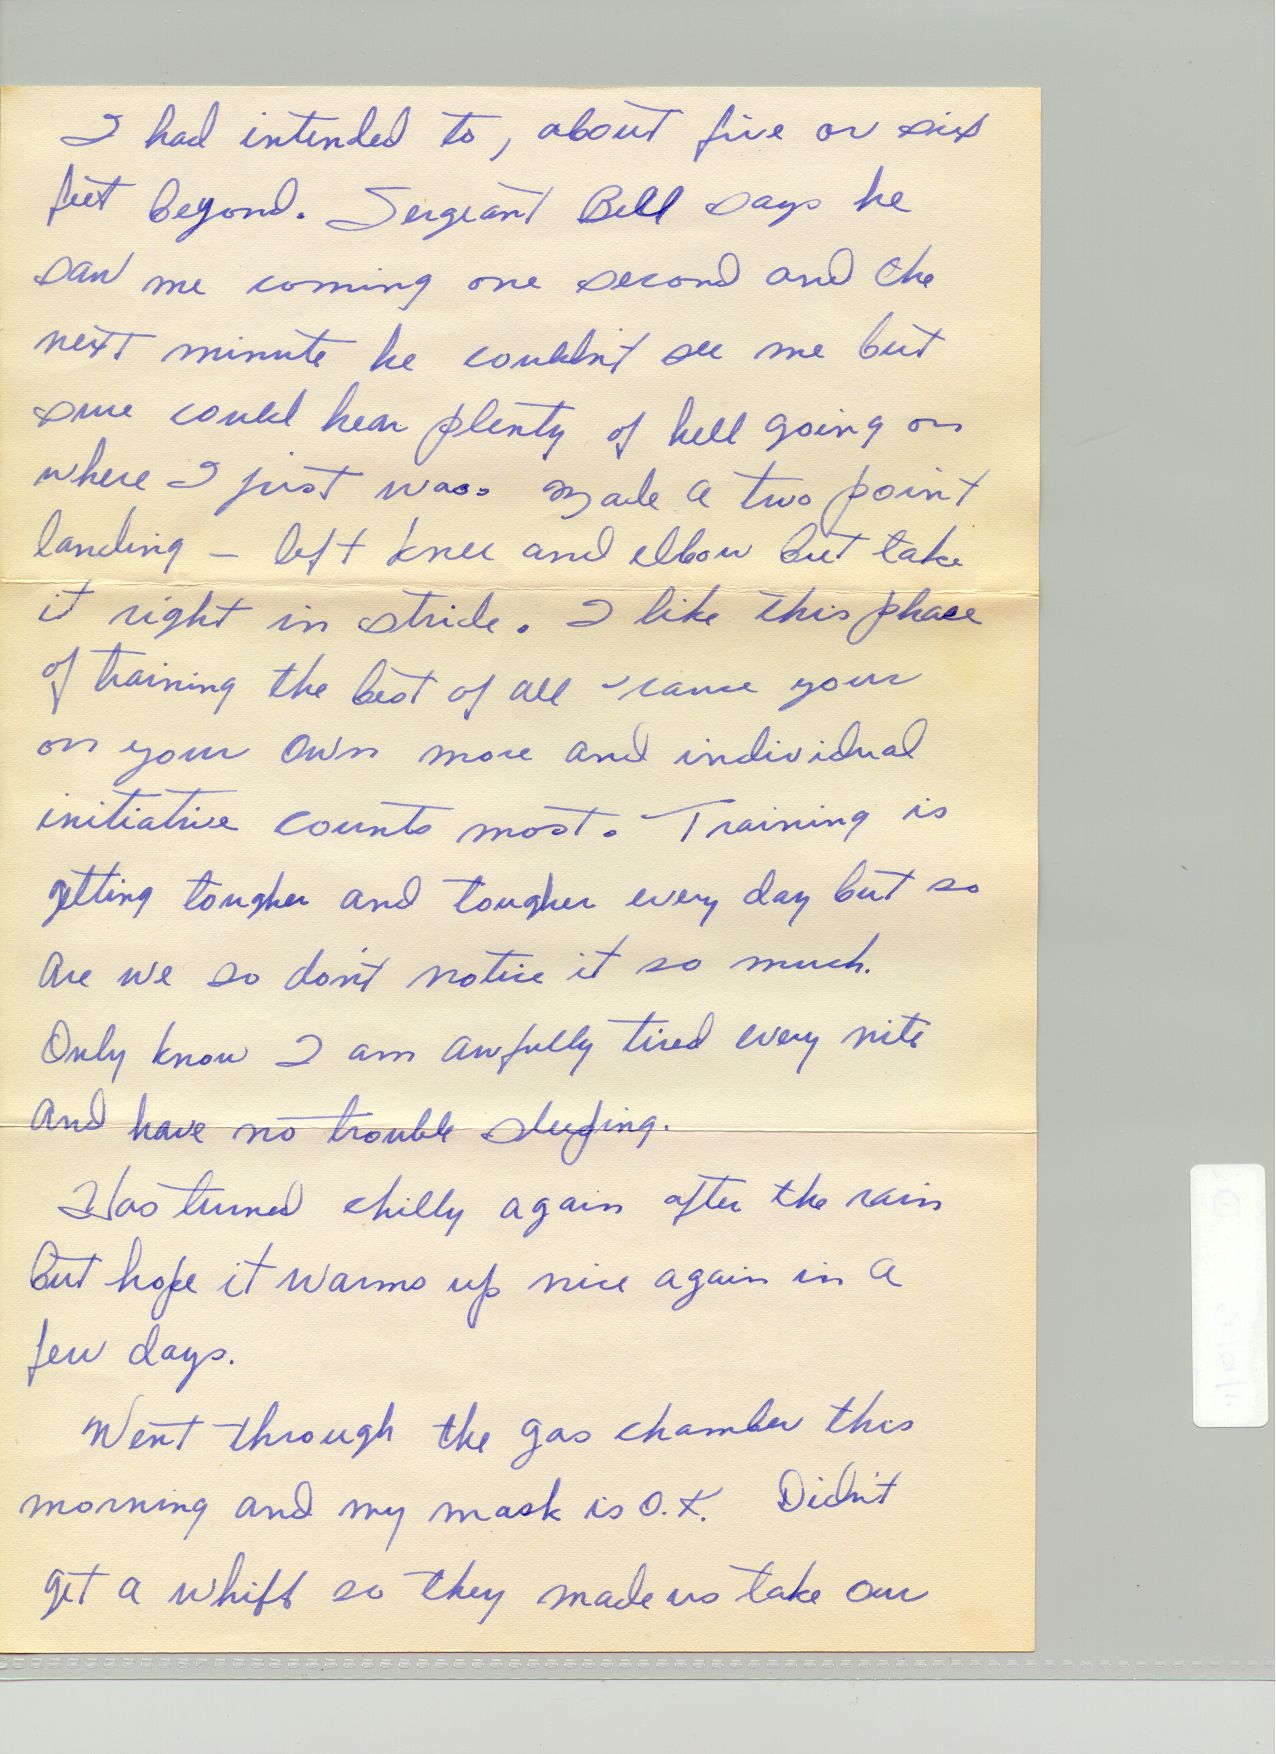 I had intended to, about five or six
feet beyond. Sergeant Bell says he
saw me coming one second and the
next minute he couldn't see me but
sure could hear plenty of hell going on
where I just was. Made a two point
landing - left knee and elbow but take
it right in stride. I like this phase
of training the best of all - 'cause your
on your own more and individual
initiative counts most. Training is
getting tougher and tougher every day but so
are we so don't notice it so much.
Only know I am awfully tired every nite
and have no trouble sleeping.
Has turned chilly again after the rain
but hope it warms up nice again in a
few days.
Went through the gas chamber this
morning and my mask is O.K. Didn't
get a whiff so they made us take our